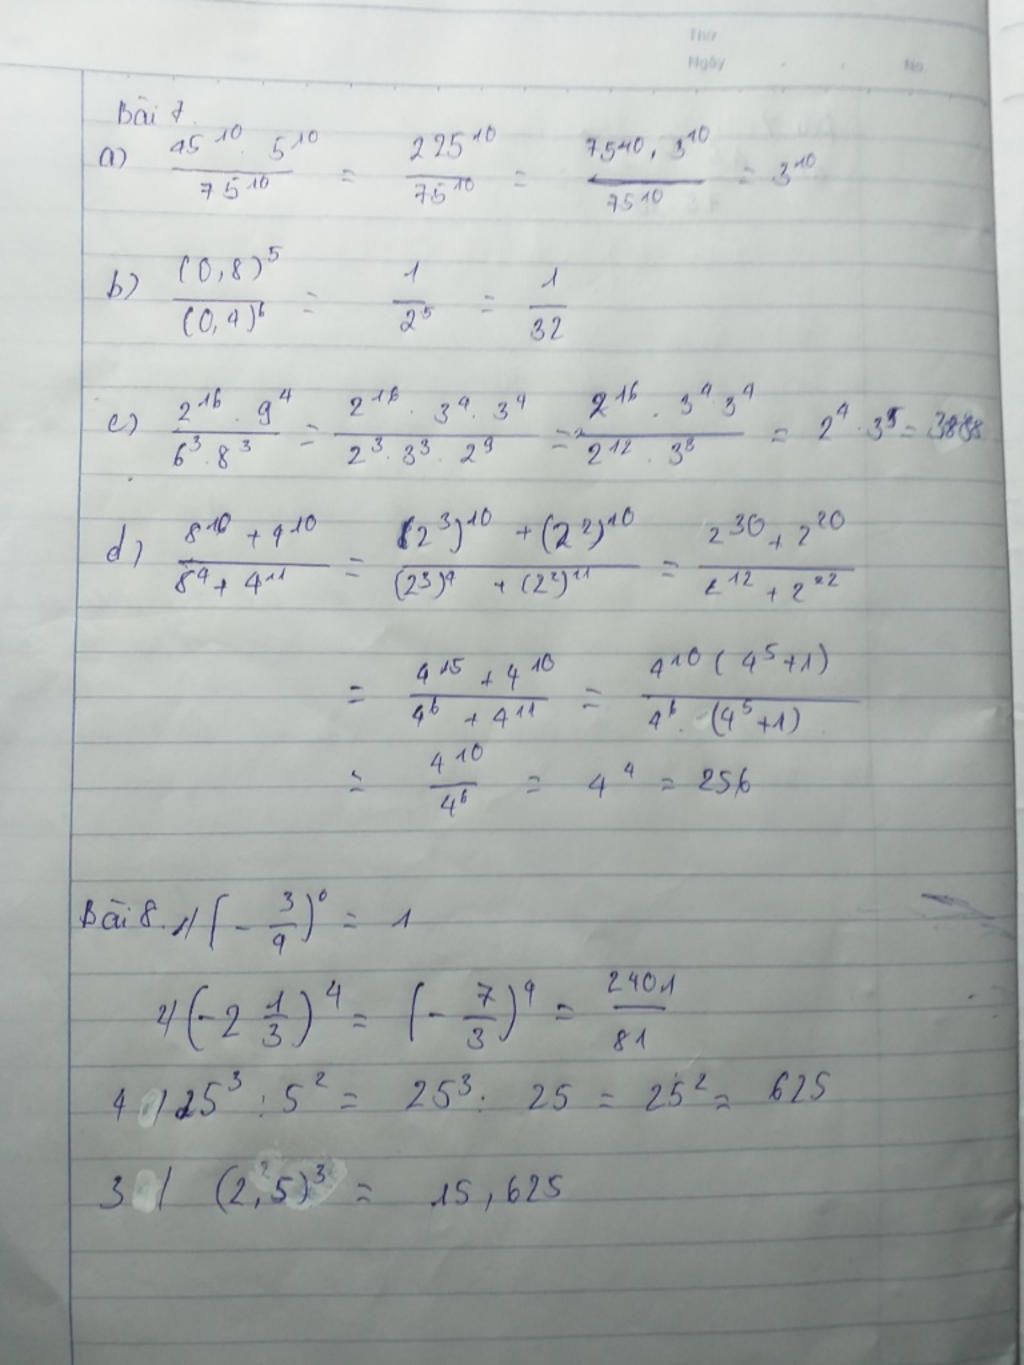 Thứ
Ngày . . No.
Bài 7.
a) 45^10 . 5^10 / 75^10 = 225^10 / 75^10 = 75^10 . 3^10 / 75^10 = 3^10
b) (0,8)^5 / (0,4)^6 = 1 / 2^5 = 1 / 32
c) 2^16 . 9^4 / 6^3 . 8^3 = 2^16 . 3^4 . 3^4 / 2^3 . 3^3 . 2^9 = 2^16 . 3^4 . 3^4 / 2^12 . 3^3 = 2^4 . 3^5 = 3888
d) 8^10 + 4^10 / 8^4 + 4^11 = (2^3)^10 + (2^2)^10 / (2^3)^4 + (2^2)^11 = 2^30 + 2^20 / 2^12 + 2^22
= 4^15 + 4^10 / 4^6 + 4^11 = 4^10 ( 4^5 + 1) / 4^6 . (4^5 + 1)
= 4^10 / 4^6 = 4^4 = 256
Bài 8. 1/ (- 3/9)^0 = 1
2/ (-2 1/3)^4 = (- 7/3)^4 = 2401 / 81
4 / 25^3 : 5^2 = 25^3 : 25 = 25^2 = 625
3 / (2,5)^3 = 15,625